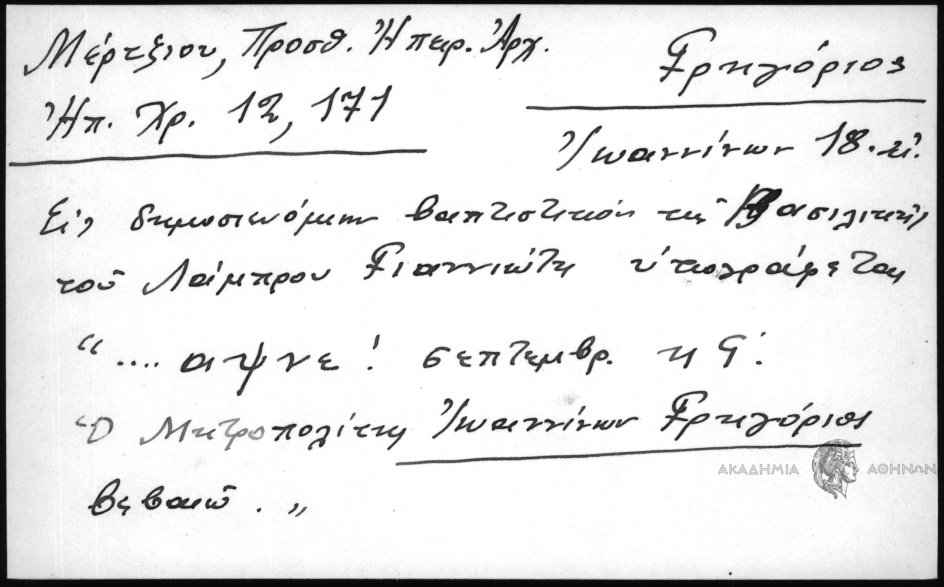 Μέρτζιου, Προσθ. Ἠπειρ. Ἀρχ.
Ἠπ. Χρ. 12, 171
Γρηγόριος
Ἰωαννίνων 18. αἰ.
Εἰς δημοσιευόμενον βαπτιστικόν τῆς Βασιλικῆς
τοῦ Λάμπρου Γιαννιώτη ὑπογράφεται
“.... αψνε! σεπτεμβρ.
Ὁ Μητροπολίτης Ἰωαννίνων Γρηγόριος
βεβαιῶ. „
ΑΚΑΔΗΜΙΑ ΑΘΗΝΩΝ